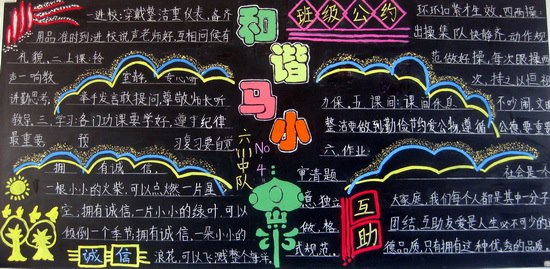 班级公约
和谐马小
六(3)中队
No.4
一进校:穿戴整洁重仪表,备齐
用品准时到;进校说声老师好,互相问候有
礼貌。二上课:铃
声一响教室静,专心听
讲勤思考,举手发言敢提问,尊敬师长听
教导。三学习:各门功课要学好,遵守纪律
最重要,预习复习要自觉
环环扣紧才生效。四两操:
出操集队快静齐,动作规
范做好操,每次眼操四
次,持之以恒视
力保。五课间:课间休息不吵闹,文
整洁要做到,勤俭节约爱公物,遵循公德要重要
六、作业:
审清题
意,独立
做,格
式规范。
拥有诚信,
一根小小的火柴,可以点燃一片星
空;拥有诚信,一片小小的绿叶,可以
倾倒一个季节;拥有诚信,一朵小小的
浪花,可以飞溅整个海洋
诚信
互助
社会是一个
大家庭,我们每个人都是其中一分子
团结、互助友爱是人生必不可少的
德品质,只有拥有这种优秀的品质。